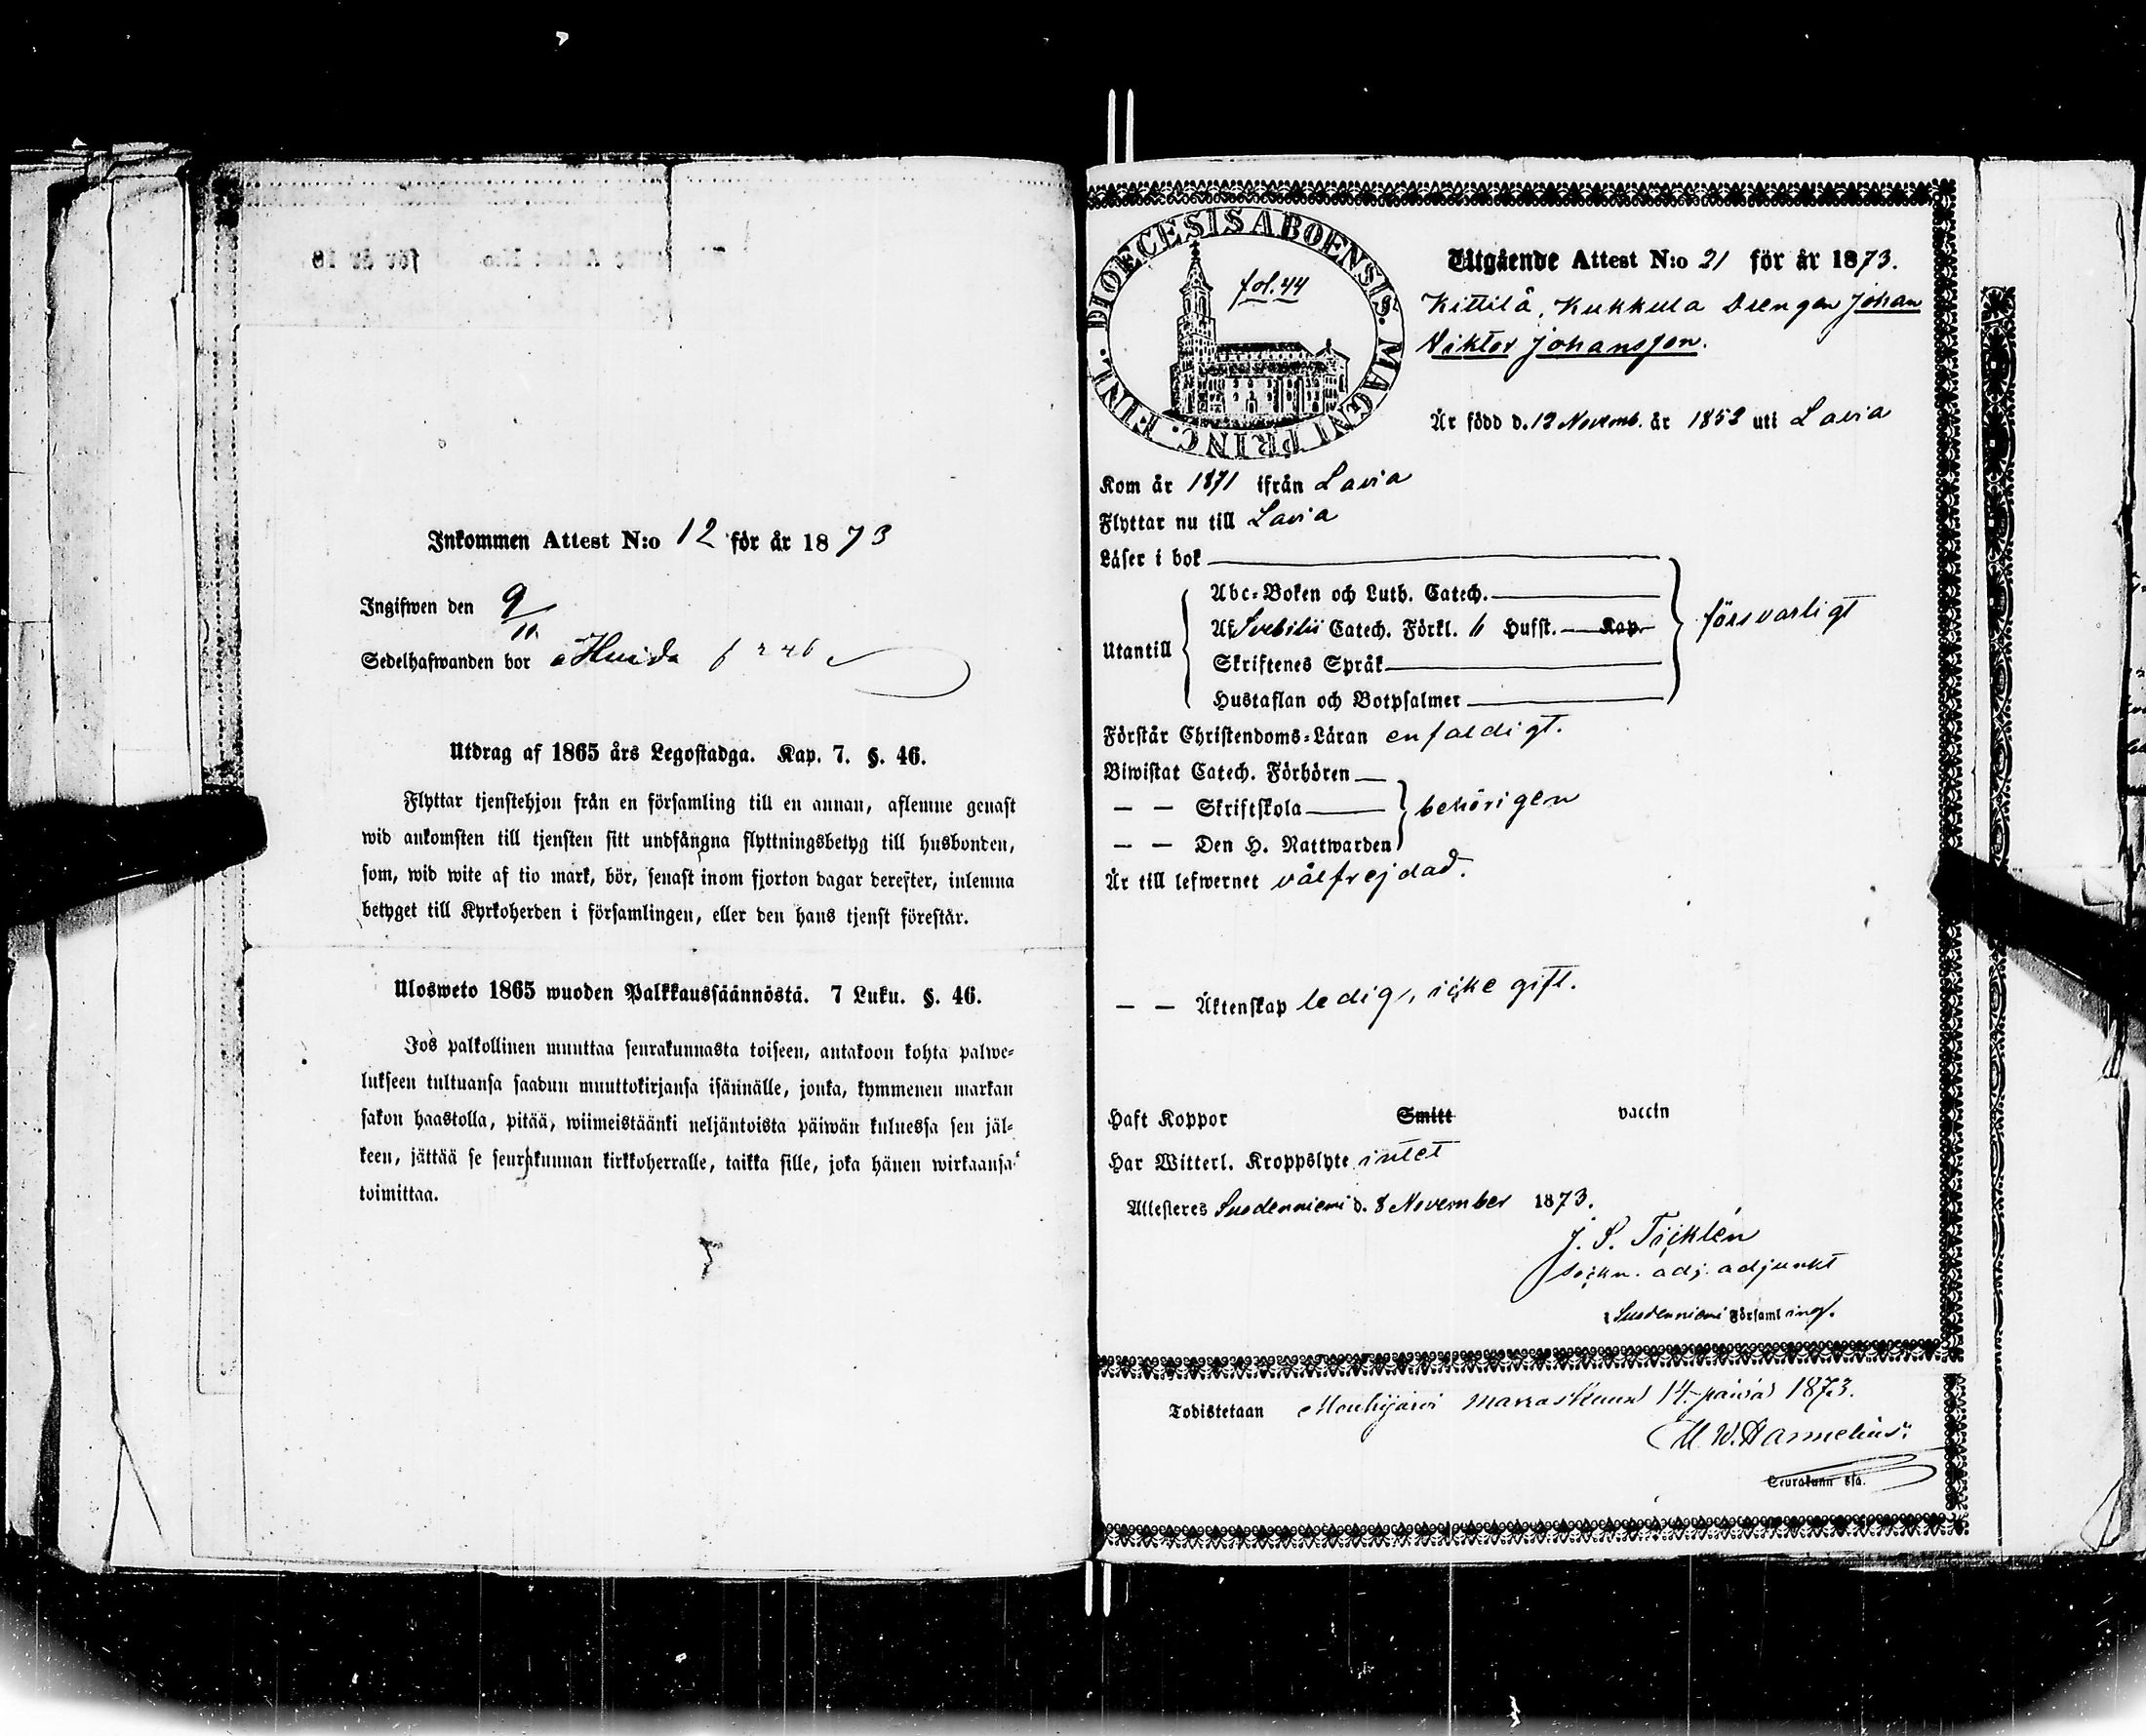 Inkommen Attest N:o 12 för år 1873
Ingifwen den 9/11.
Sedelhafwanden bor å Huida f 246
Utdrag af 1865 års Legostadga. Kap. 7. §. 46.
Flyttar tjenstehjon från en församling till en annan, aflemne genast
wid ankomsten till tjensten sitt undfångna flyttningsbetyg till husbonden,
som, wid wite af tio mark, bör, senast inom fjorton dagar derefter, inlemna
betyget till Kyrkoherden i församlingen, eller den hans tjenst förestår.
Ulosweto 1865 wuoden Palkkaussäännöstä. 7 Luku. §. 46.
Jos palkollinen muuttaa seurakunnasta toiseen, antakoon kohta palwe-
lukseen tultuansa saadun muuttokirjansa isännälle, jonka, kymmenen markan
sakon haastolla, pitää, wiimeistäänki neljäntoista päiwän kuluessa sen jäl-
keen, jättää se seurakunnan kirkkoherralle, taikka sille, joka hänen wirkaansa
toimittaa.
DIOECESIS ABOENSIS. MAGNI PRINC. FINL.
fol. 44
Utgående Attest N:o 21 för år 1873.
Kittilä, Kukkula Drengen Johan
Viktor Johansson.
Är född d. 12 Novemb. år 1852 uti Lavia
Kom år 1871 ifrån Lavia
Flyttar nu till Lavia
Läser i bok
Utantill
Abc-Boken och Luth. Catech.
Af Svebilii Catech. Förkl. 6 Hufst. Kap.
försvarligt
Skriftenes Språk
Hustaflan och Botpsalmer
Förstår Christendoms-Läran enfaldigt.
Biwistat Catech. Förhören
— — Skriftskola
behörigen
— — Den H. Nattwarden
Är till lefwernet välfrejdad.
— — Äktenskap ledig, icke gift.
Haft Koppor Smitt vaccin
Har Witterl. Kroppslyte intet
Attesteres Suodenniemi d. 8 November 1873.
J. S. Täcklén
sockn. adj. adjunkt
i Suodenniemi Församling.
Todistetaan Mouhijärvi marraskuun 14 päivä 1873.
M. W. Hannelius.
Seurakunn ssa.